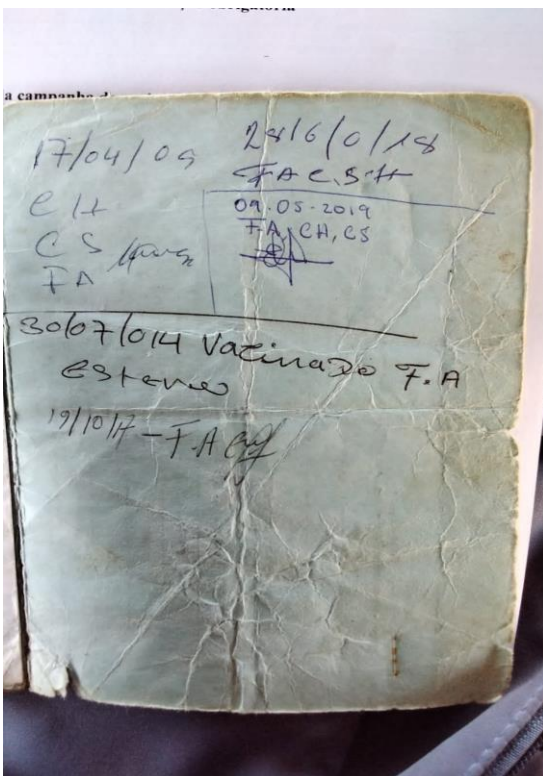 a campanha
17/04/09
CH
CS
FA
28/6/0/18
FA C.S H
09.05.2019
F.A, CH, CS
30/07/014 Vacinado F.A
19/10/17 - F.A